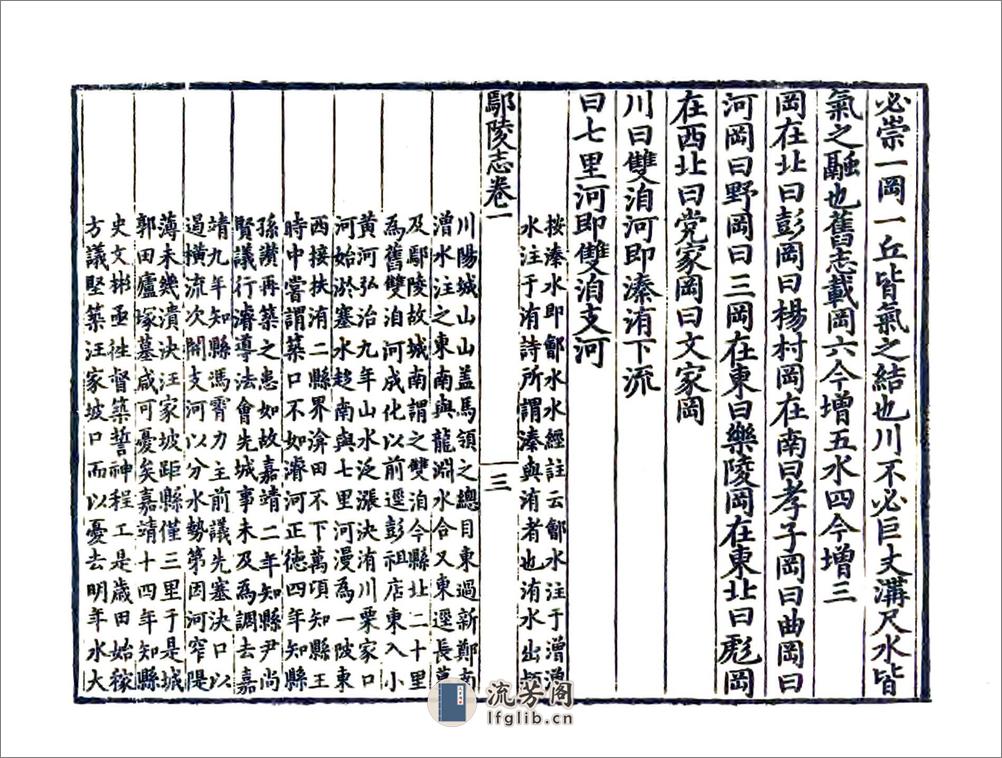 必崇一岡一丘皆氣之結也川不必巨丈溝尺水皆
氣之融也舊志載岡六今增五水四今增三
岡在北曰彭岡曰楊村岡在南曰孝子岡曰曲岡曰
河岡曰野岡曰三岡在東曰樂陵岡在東北曰彪岡
在西北曰党家岡曰文家岡
川曰雙洎河即溱洧下流
曰七里河即雙洎支河
按溱水即鄶水水經註云鄶水注于潧潧
水注于洧詩所謂溱與洧者也洧水出潁
鄢陵志卷一
三
川陽城山山盖馬領之總目東過新鄭南
潧水注之東南與龍淵水合又東逕長葛
及鄢陵故城南謂之雙洎今縣北二十里
為舊雙洎河成化以前逕彭祖店東入小
黃河弘治九年山水泛漲決洧川栗家口
河始淤塞水趍南與七里河漫為一陂東
西接扶洧二縣界渰田不下萬頃知縣王
時中嘗謂築口不如濬河正德四年知縣
孫讚再築之患如故嘉靖二年知縣尹尚
賢議行濬導法會先城事未及為調去嘉
靖九年知縣馮霄力主前議先塞決口以
遏橫流次開支河以分水勢第因河窄隄
薄未幾潰決汪家坡距縣僅三里于是城
郭田廬塚墓咸可憂矣嘉靖十四年知縣
史文彬亟徃督築誓神程工是歲田始稼
方議堅築汪家坡口而以憂去明年水大
流芳阁
lfglib.cn